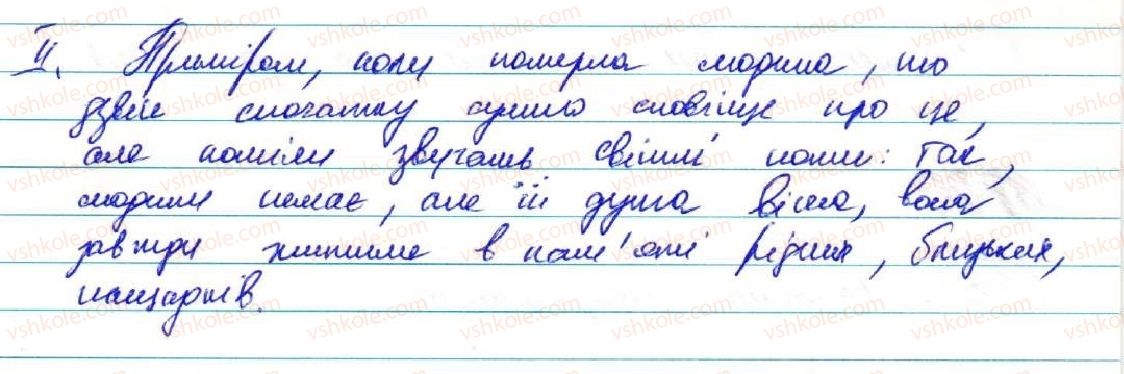 ІІ. Приміром, коли померла людина, то
дзвін спочатку сумно сповіщує про це,
але потім звучать світлі ноти: так,
людини немає, але її душа вічна, вона
завжди житиме в пам'яті рідних, близьких,
нащадків.